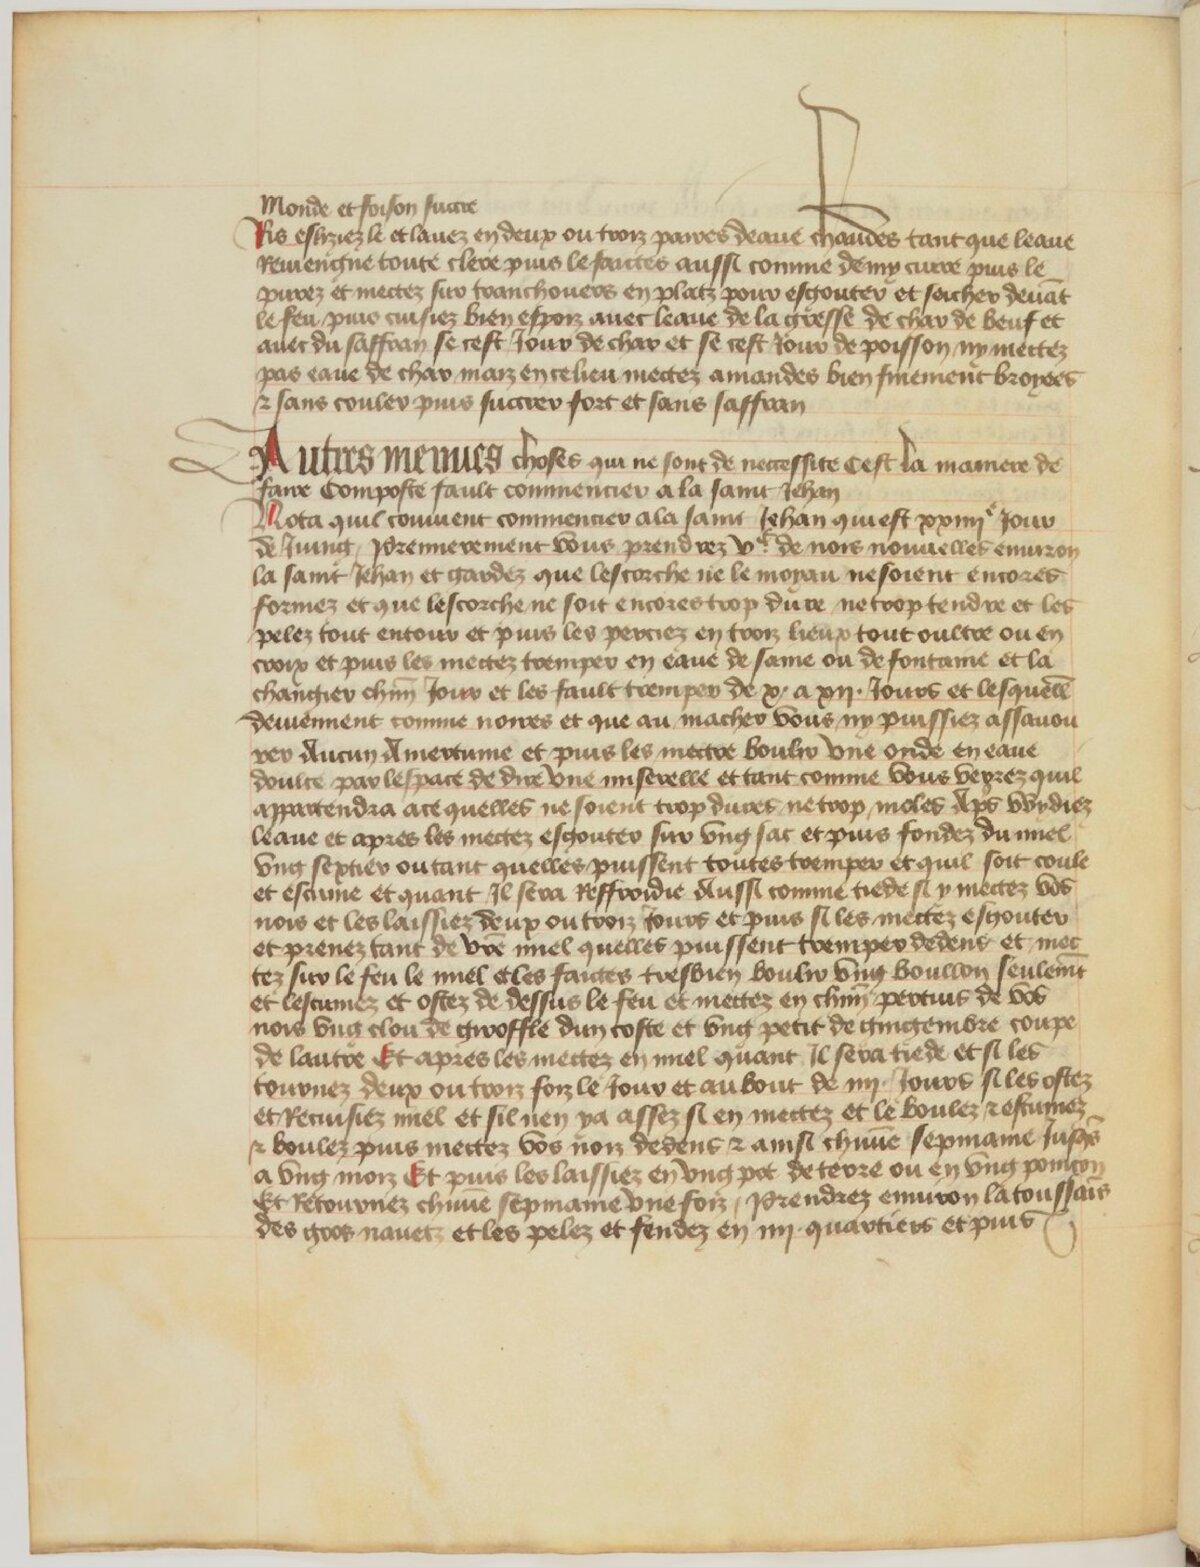 Monde et foison succre
Ris eslisiez le et lavez en deux ou trois paires deaue chaudes tant que leaue
Reviengne toute clere puis le faictes aussi comme demy cuire puis le
purez et mectez sur tranchouers en platz pour esgouter et seicher devāt
le feu puis cuisiez bien espoiz avec leaue de la gresse de char de beuf et
avec du saffran se cest Jour de char et se cest Jour de poisson ny mectez
pas eaue de char maiz en ce lieu mectez amandes bien finement broyees
⁊ sans couler puis succrer fort et sans saffran
Autres menues choses qui ne sont de necessite Cest la maniere de
faire Composte fault commencier a la saint Jehan
Nota quil convient commencier a la saint Jehan qui est xxiiijᵉ Jour
de Juing, Premierement vous prendrez vᶜ de nois nouvelles environ
la saint Jehan et gardez que lescorche ne le moyau ne soient encores
formez et que lescorche ne soit encores trop dure ne trop tendre et les
pelez tout entour et puis les perciez en troiz lieux tout oultre ou en
croix et puis les mectez tremper en eaue de saine ou de fontaine et la
changier chūn Jour et les fault tremper de x. a xij. Jours et lesquelē
deviennent comme noires et que au macher vous ny puissiez assavou
rer Aucun Amertume et puis les mectre boulir vne onde en eaue
doulce par lespace de dire vne miserelle et tant comme vous verrez quil
appartendra a ce quelles ne soient trop dures ne trop moles Aps vuydiez
leaue et apres les mectez esgouter sur vng sac et puis fondez du miel
vng septier ou tant quelles puissent toutes tremper et quil soit coule
et escume et quant Il sera Reffroidie Aussi comme tiede si y mectez vos
nois et les laissiez deux ou troiz Jours et puis si les mectez esgouter
et prenez tant de vrē miel quelles puissent tremper dedens et mec
tez sur le feu le miel et les faictes tresbien boulir vng boullon seulemt̄
et lescumez et ostez de dessus le feu et mectez en chūn pertuis de vos
nois vng clou de giroffle dun coste et vng petit de gingembre coupe
de lautre Et apres les mectez en miel quant Il sera tiede et si les
tournez deux ou troiz foiz le Jour et au bout de iiij. Jours si les ostez
et Recuisiez miel et sil nen ya assez si en mectez et le boulez ⁊ escumez
⁊ boulez puis mectez vos noiz dedens ⁊ ainsi chūne sepmaine Jusqs̄
a vng moiz Et puis les laissiez en vng pot de terre ou en vng poinçon
Et Retournez chūne sepmaine vne foiz, Prendrez environ la toussaīs
des gros navetz et les pelez et fendez en iiij. quartiers et puis